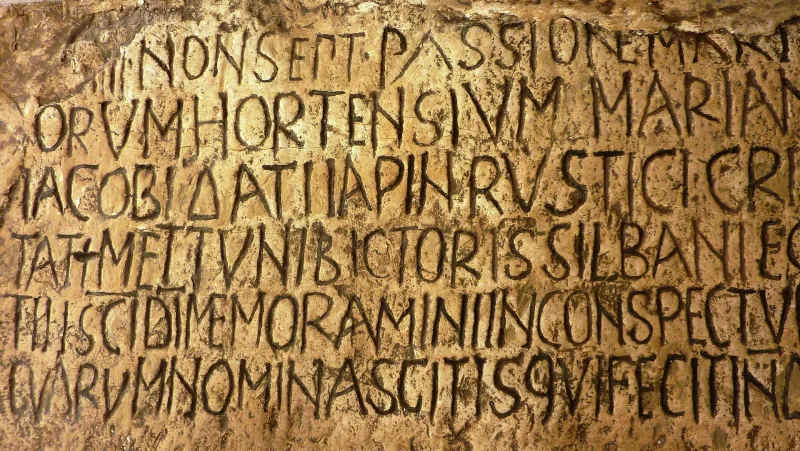 IIII NON SEPT · PASSIONE MART
ORVM HORTENSIVM MARIAN
IACOBI DATI IAPIN RVSTICI CRI
TATI METTVNI BICTORIS SILBANI EG
TII SCI DI MEMORAMINI IN CONSPECTV
QVARVM NOMINA SCITIS QVI FECIT IN